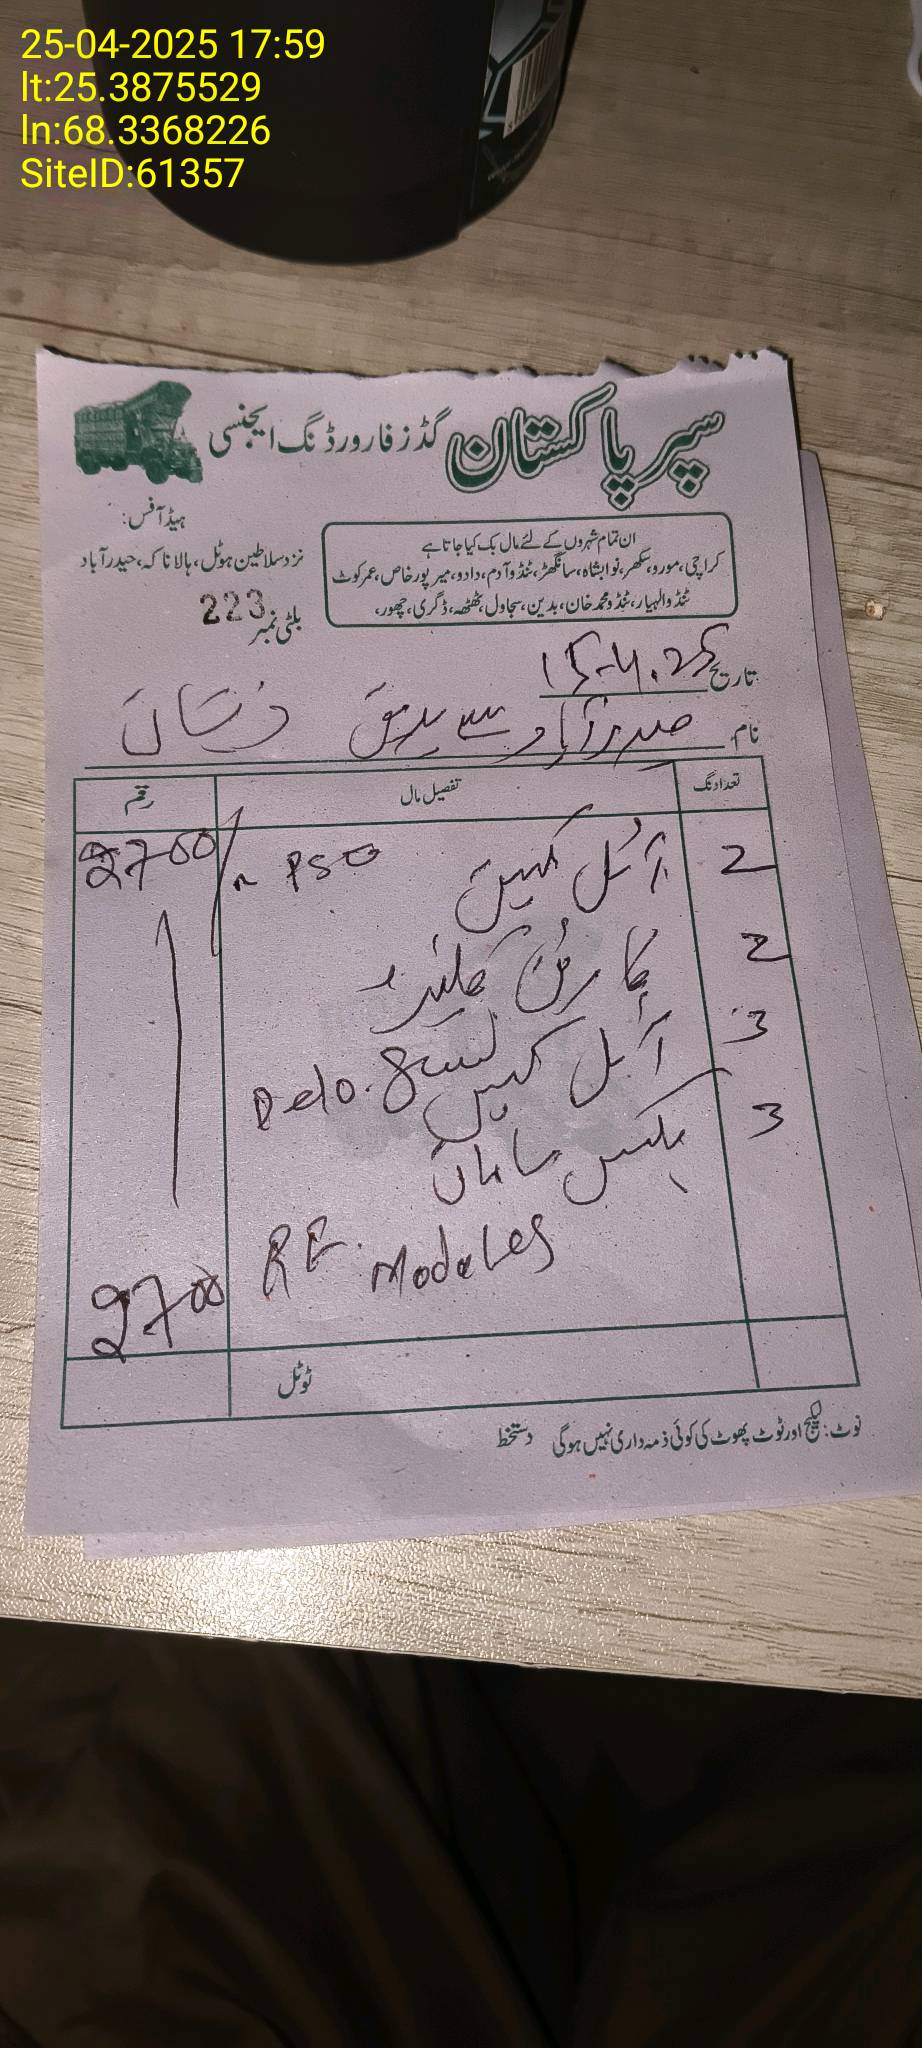 25-04-2025 17:59
lt:25.3875529
ln:68.3368226
SiteID:61357
سپر پاکستان گڈز فارورڈنگ ایجنسی
ہیڈ آفس:
نزد سلاطین ہوٹل، ہالا ناکہ، حیدرآباد
ان تمام شہروں کے لئے مال بک کیا جاتا ہے
کراچی، مورو، سکھر، نوابشاہ، سانگھڑ، ٹنڈو آدم، دادو، میرپور خاص، عمر کوٹ
ٹنڈوالہیار، ٹنڈو محمد خان، بدین، سجاول، ٹھٹھہ، ڈگری، چھور،
بلٹی نمبر 223
تاریخ 15-4.25
نام حیدرآباد سے
تعداد نگ تفصیل مال رقم
2 آئل کین PSO 2700/
2 کارٹن
3 آئل کین Delo.
3 بکس سامان
RE. Modules
2700
ٹوٹل
نوٹ: لیکج اور ٹوٹ پھوٹ کی کوئی ذمہ داری نہیں ہوگی دستخط